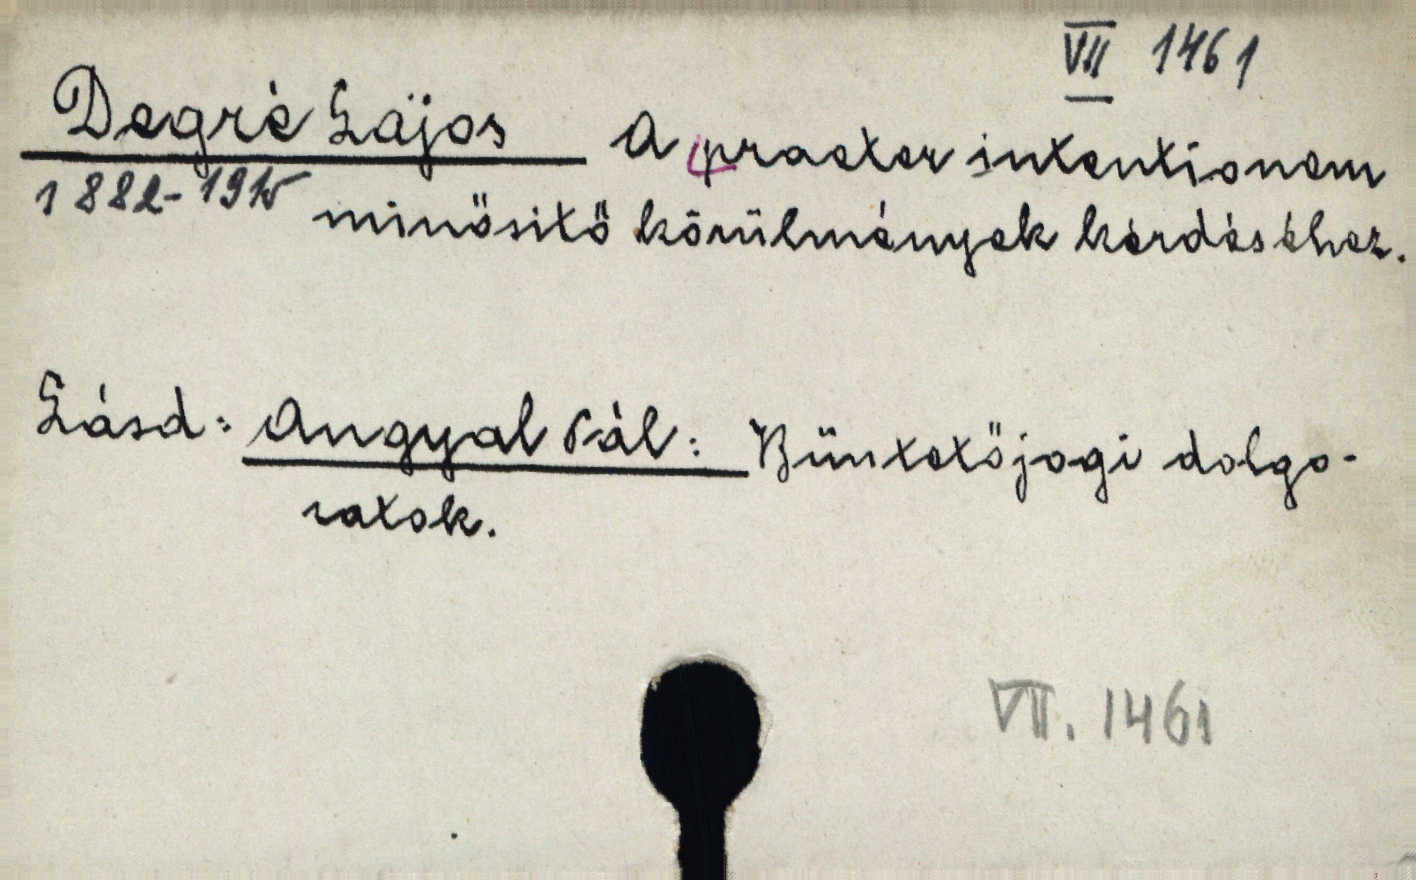 VII 1461
Degré Lajos A praeter intentionem
1882-1915 minősitő körülmények kérdéséhez.
Lásd: Angyal Pál: Büntetőjogi dolgo-
zatok.
VII. 1461